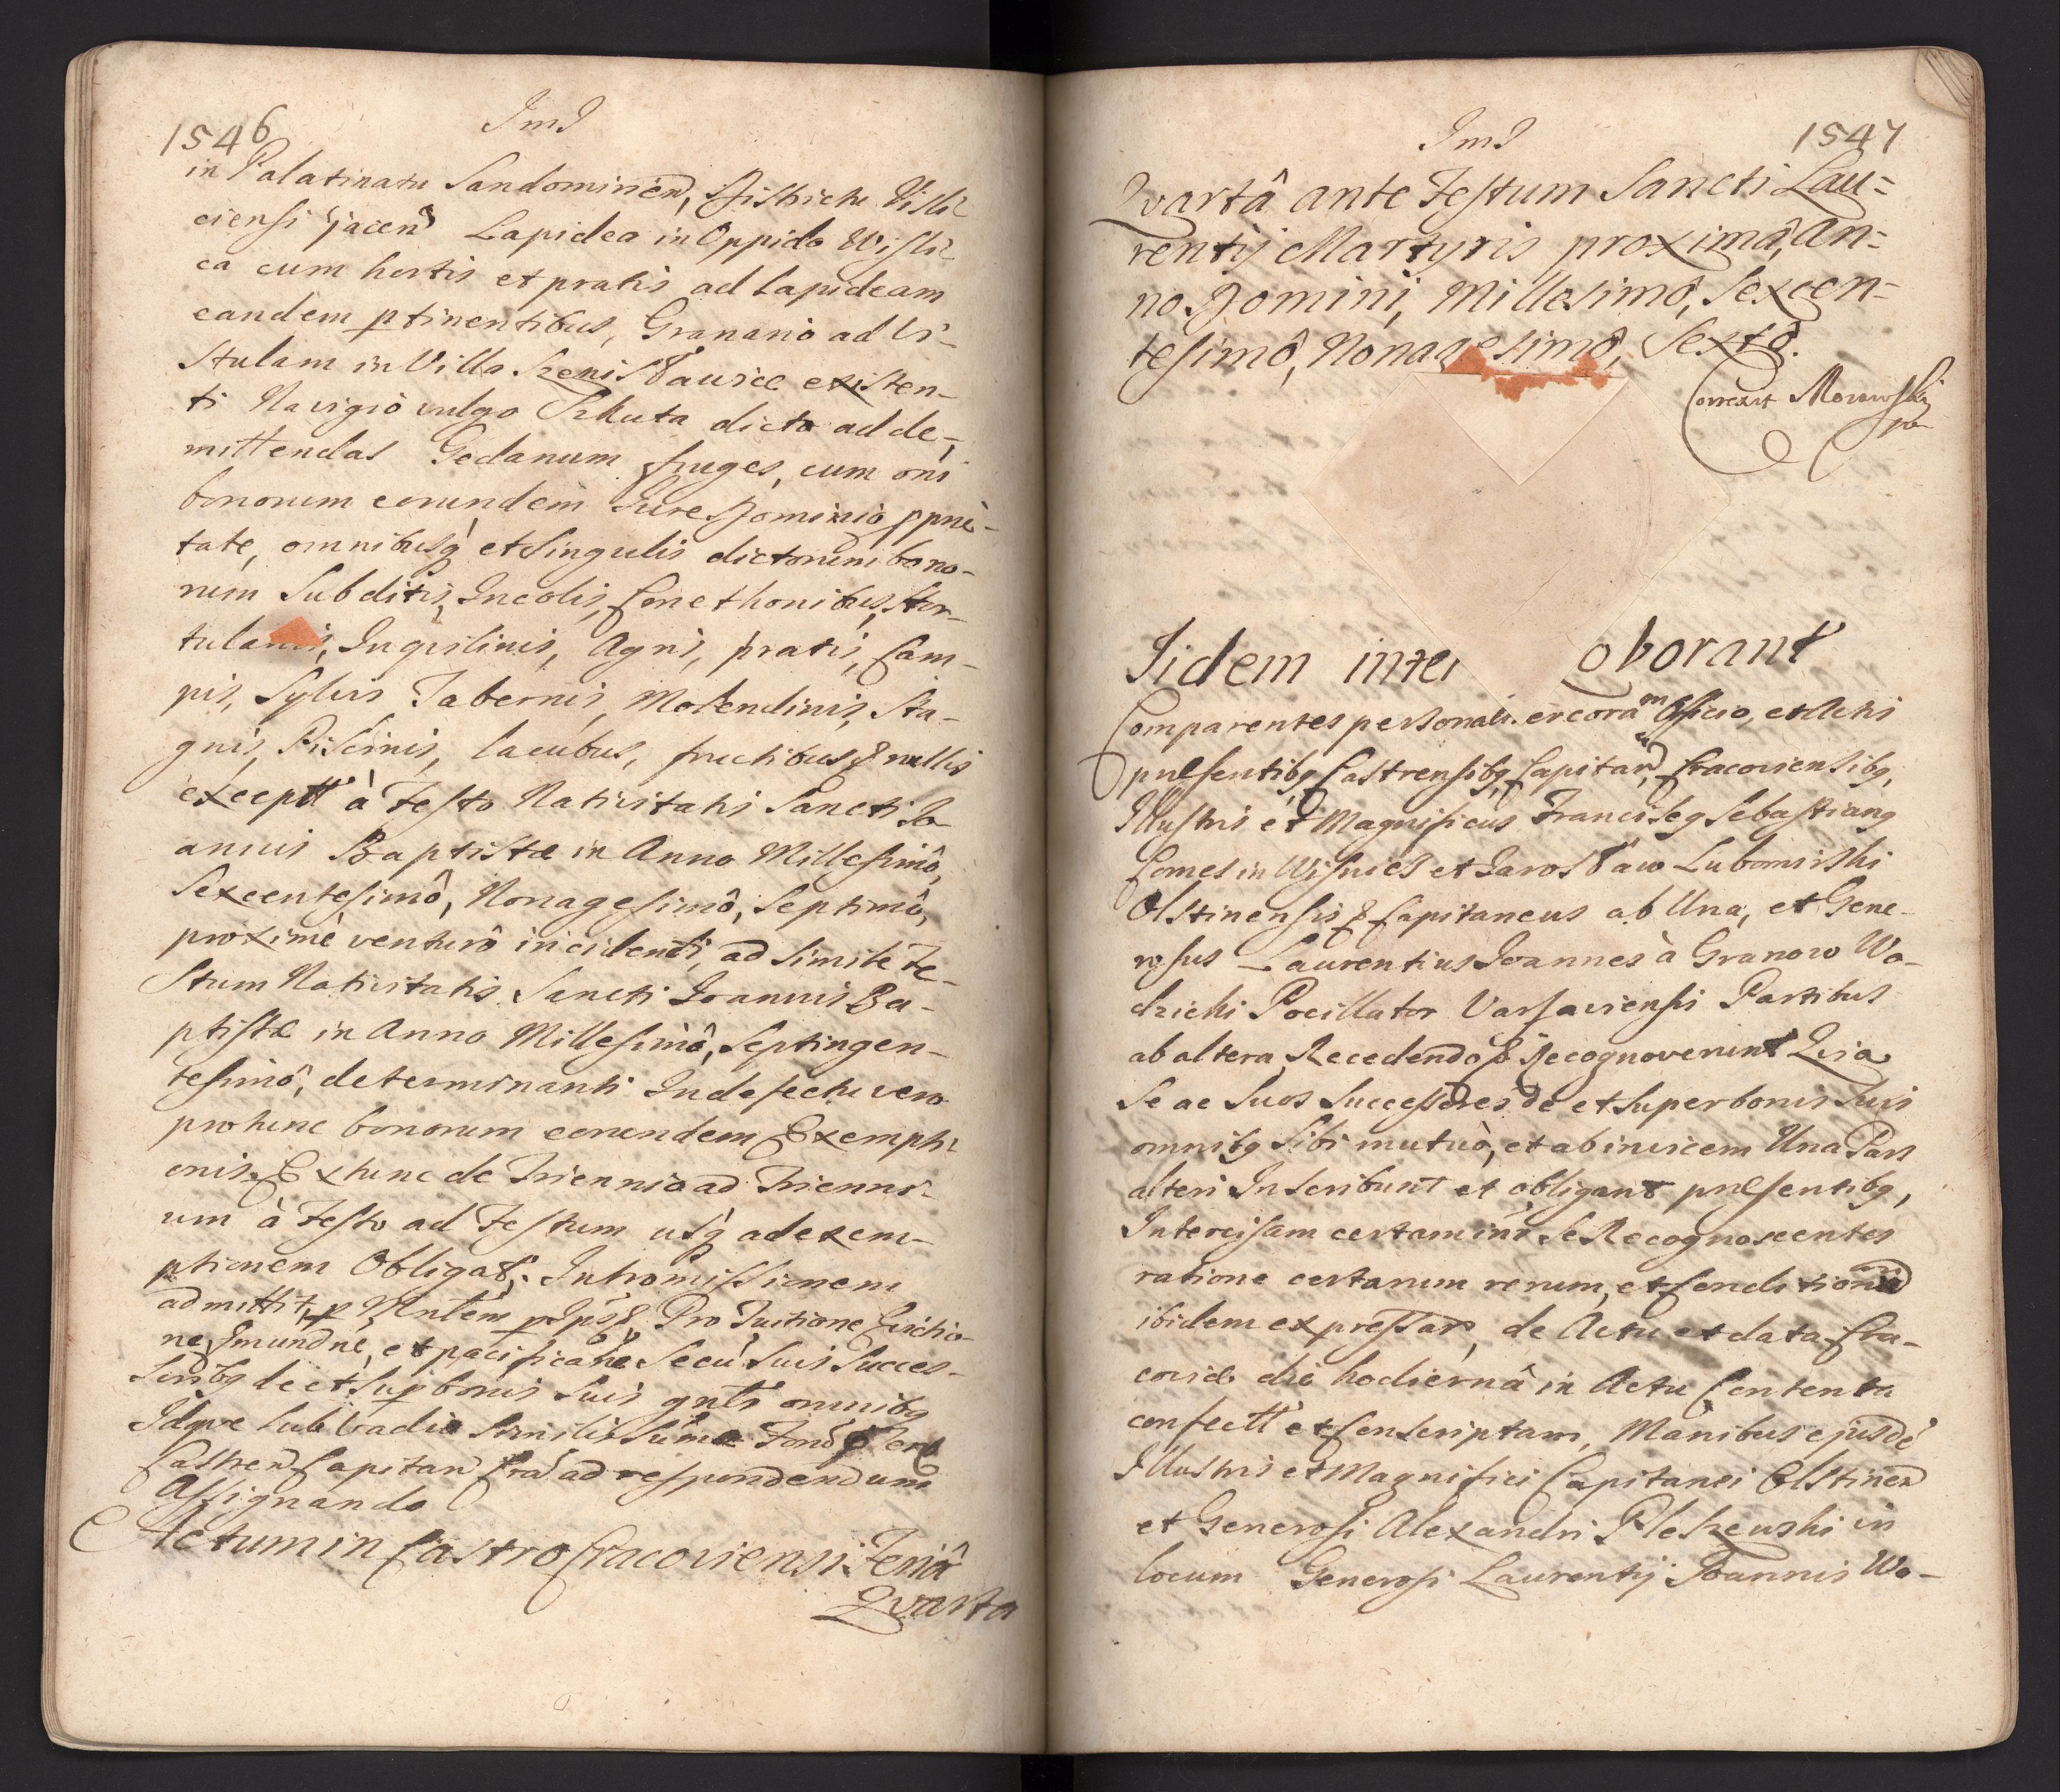 1546
ImI
in Palatinatu Sandomirien, Districtu Visli-
ciensi jacen Lapidea in Oppido Wisli-
ca cum hortis et pratis ad Lapideam
eandem ptinentibus, Granario ad Vi-
stulam in Villa existen-
ti Navigiô vulgo Szkuta dicto ad de-
mittendas Gedanum fruges, cum oni
bonorum eorundem Jure Dominio pprie-
tate, omnibusq et Singulis dictorum bono-
rum Subditis, Incolis, Cmethonibus, Hor-
tulanis, Inquilinis, Agris, pratis, Cam-
pis, Sylvis Tabernis, Molendinis, Sta-
gnis, Piscinis, lacubus, fructibus & nullis
exceptt à Festo Nativitatis Sancti Jo-
annis Baptistæ in Anno Millesimô,
Sexcentesimô, Nonagesimô, Septimô,
proximè venturô incidenti, ad Simile Fe-
stum Nativitatis Sancti Joannis Ba-
ptistæ in Anno Millesimô, Septingen-
tesimô, determinanti In defectu vero
pro tunc bonorum eorundem Exempti-
onis Ex tunc de Triennio ad Trienni-
um à Festo ad Festum usq ad exem-
ptionem Obligat. Intromissionem
admittit, p Mntem p Ips&. Pro Tuitione Evictio-
ne, Jmundne, et pacificane Se cu Suis Succes-
soribq de et Sup bonis Suis gnlr omnibq
Idque Sub Vadio Similis Sumæ Foro & Terr
Castren Capitan Cra ad respondendum
Assignando
Actum in Castro Cracoviensi Feriâ
Qvarta
ImI
1547
Qvartâ ante Festum Sancti Lau-
rentij Martyris proximâ, An-
no Domini, Millesimô, Sexcen-
tesimô, Nonagesimô, Sextô.
Correxit
Iidem inter oborant
Comparentes personalr coram Officio, et Actis
pnlsentibq Castrensibq Capitan Cracoviensibq,
Illustris et Magnificus Franciscq Sebastianq
Comes in Wisnicz et Jarosław Lubomirski
Olstinensis & Capitaneus ab Una, et Gene-
rosus Laurentius Joannes à Granow Wo-
dzicki Pocillator Varsaviensis Partibus
ab altera, Recedendo & Recognoverunt Quia
Se ac Suos Successores de et Super bonis Suis
omnibq Sibi mutuò, et ab invicem Una Pars
alteri Inscribunt et obligant pnlsentibq,
Intercisam certam intr Se Recognoscentes
ratione certarum rerum, et Condition
ibidem expressar, de Actu et data Cra-
coviæ die hodiernâ in Actu Contenta
confectt et Conscriptam, Manibus ejusdẽ
Illustris et Magnifici Capitanei Olstinen
et Generosi Alexandri Pleszewski in
locum Generosi Laurentij Joannis Wo-